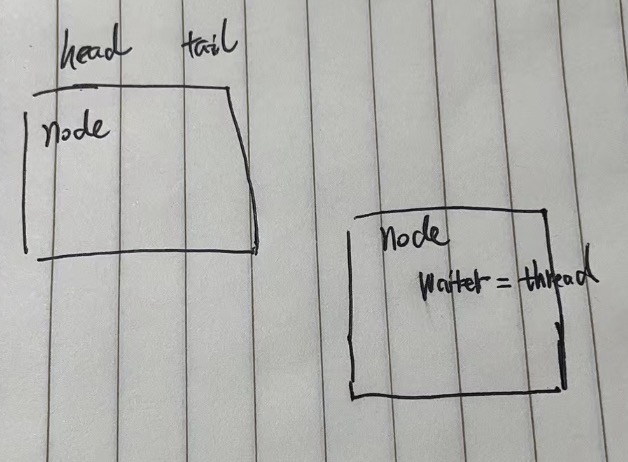 head tail
node
node
waiter = thread